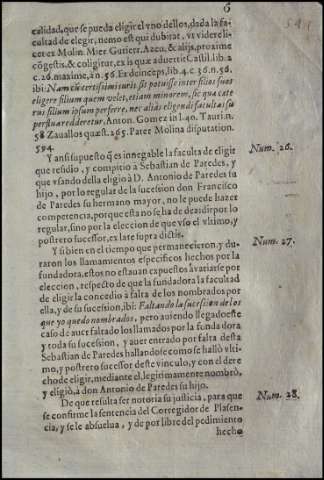 6
calidad, que se pueda eligir el vno dellos, dada la fa-
cultad de elegir, nemo est qui dubitat, vt videre li-
cet ex Molin. Mier. Gutierr. Azeu. & alijs, proxime
cõgestis, & coligitur, ex ijs quæ aduertit Castil. lib. 2
c. 26. maxime, an. 56. Et deinceps, lib. 4. c. 36. n. 56.
ibi: Nam certissimi iuris sit potuisse inter filios suos
eligere filium quem velet, etiam minorem, sic qua cate
rus filium ipsum perferre, nec alias eligendi facultas su
perflua redderetur, Anton. Gomez in l. 40. Tauri n.
58 Zauallos quæst. 265. Pater Molina disputation.
594.
Y ansi supuesto q̃ es innegable la facultã de eligir
que residio, y compitio a Sebastian de Paredes, y
que vsando della eligiò à D. Antonio de Paredes su
hijo, por lo regular de la sucession don Francisco
de Paredes su hermano mayor, no le puede hazer
competencia, porque esta no se ha de deaidir por lo
regular, sino por la eleccion de que vso el vltimo, y
postrero sucessor, ex late supra dictis.
Y si bien en el tiempo que permanecieron, y du-
raron los llamamientos especificos hechos por la
fundadora, estos no estauan capuestos à variarse por
eleccion, respecto de que la fundadora la facultad
de eligir la concedio à falta de los nombrados por
ella, y de su sucession, ibi: Faltando la sucession de los
que yo quedo nombrados, pero auiendo llegado este
caso de auer faltado los llamados por la fundadora
y toda su sucession, y auer entrado por falta desta
Sebastian de Paredes hallandose como se hallò vlti-
mo, y postrero sucessor deste vinculo, y con el dere
cho de eligir, mediante el, legitimamente nombrò,
y eligiò, à don Antonio de Paredes su hijo.
De que resulta ser notoria su justicia, para que
se confirme la sentencia del Corregidor de Plasen-
cia, y se le absuelua, y de por libre del pedimiento
hecho
Num. 26.
Num. 27.
Num. 28.